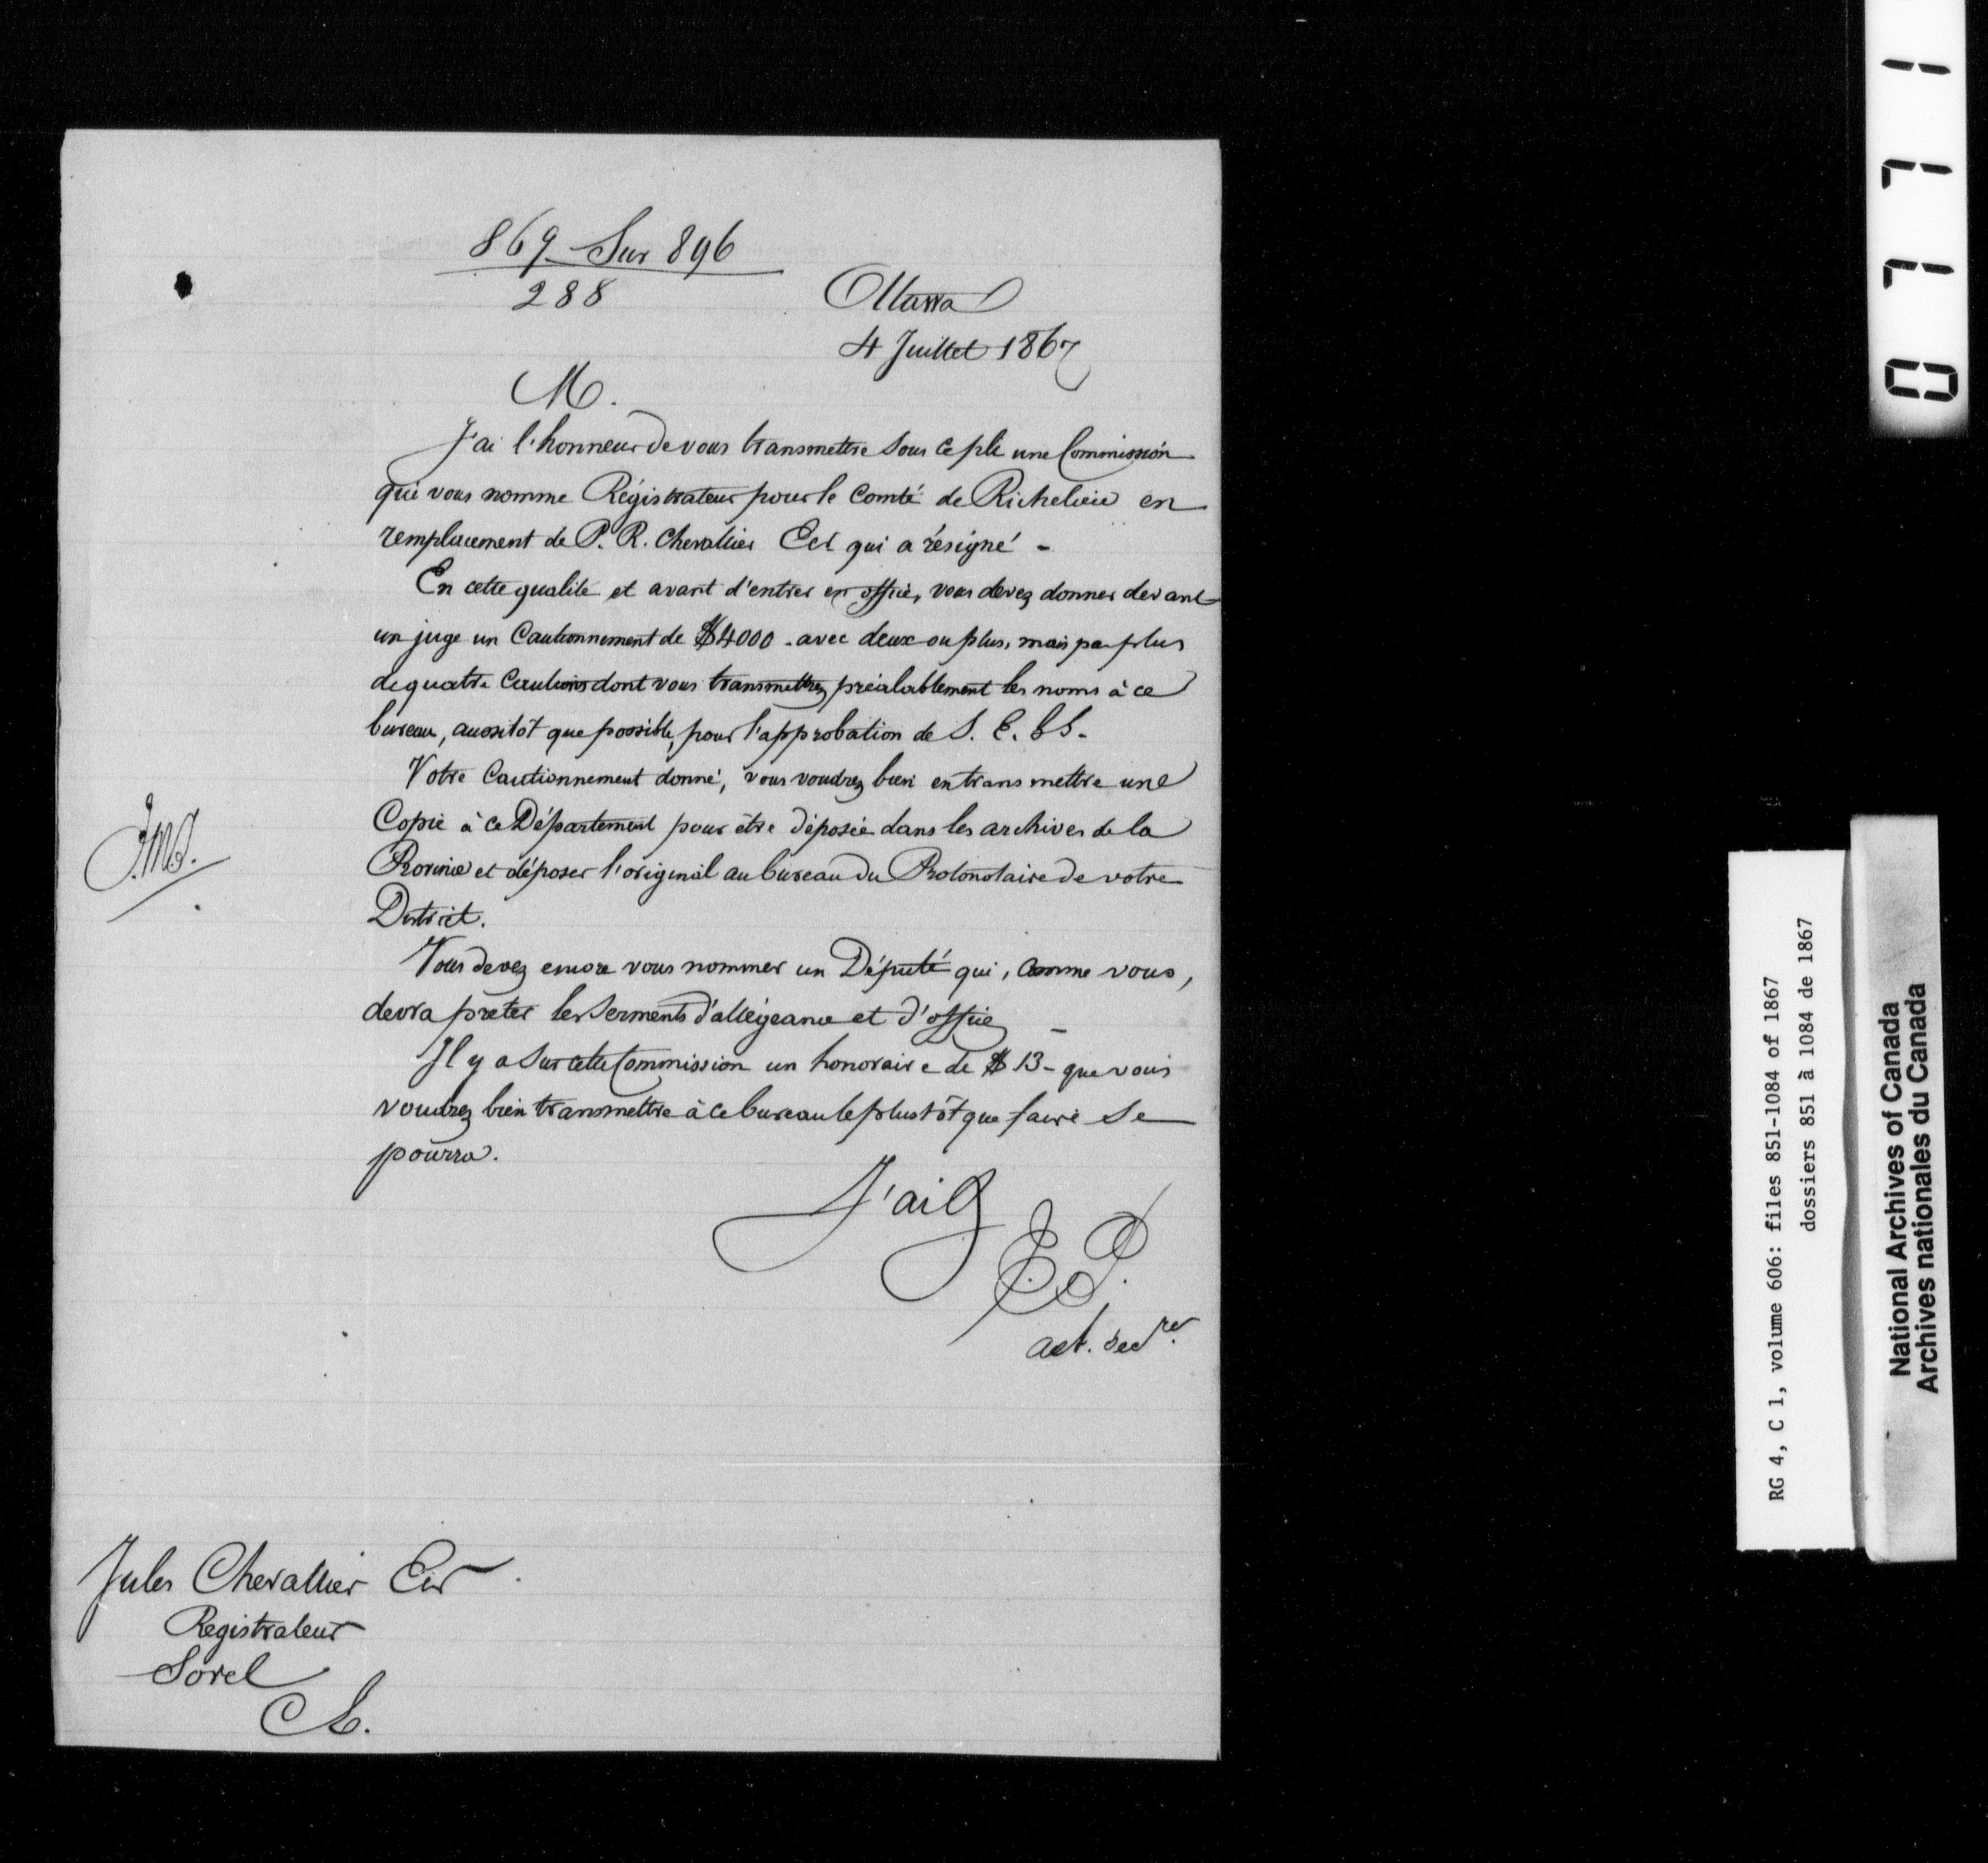 869 Sur 896
288
Ottawa
4 Juillet 1867
M.
J'ai l'honneur de vous transmettre sous ce pli une Commission
qui vous nomme Régistrateur pour le Comté de Richelieu en
remplacement de P. R. Chevallier Ecr qui a résigné -
En cette qualité et avant d'entrer en office, vous devez donner devant
un juge un Cautionnement de $4000 - avec deux ou plus, mais pas plus
de quatre Cautions dont vous transmettrez préalablement les noms à ce
bureau, aussitôt que possible, pour l'approbation de S. E.
Votre Cautionnement donné, vous voudrez bien en transmettre une
Copie à ce Département pour être déposée dans les archives de la
Province et déposer l'original au bureau du Protonotaire de votre
District.
Vous devez encore vous nommer un Député qui, comme vous,
devra prêter les Serments d'allégeance et d'office -
Il y a sur cette Commission un honoraire de $ 13 - que vous
voudrez bien transmettre à ce bureau le plus tôt que faire se
pourra.
J'ai &
E. P.
act. secre.
Jules Chevallier Ecr.
Registrateur
Sorel
0771
RG 4, C 1, volume 606: files 851-1084 of 1867
dossiers 851 à 1084 de 1867
National Archives of Canada
Archives nationales du Canada